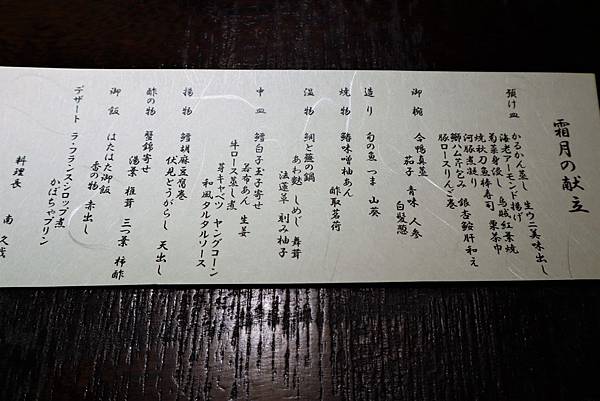 霜月の献立
預け皿 かるかん蒸し 生ウニ美味出し
海老アーモンド揚げ
菊菜身浸し 烏賊紅葉焼
焼秋刀魚棒寿司 栗茶巾
河豚煮凝り 銀杏鮟肝和え
豚ロースりんご巻
御椀 合鴨真蒸
茄子 青味 人参
白髪葱
造り 旬の魚 つま 山葵
焼物 鰆味噌柚あん
酢取茗荷
温物 鯛と蕪の鍋
あわ麩 しめじ 舞茸
法蓮草 刻み柚子
中皿 鱈白子玉子寄せ
若布あん 生姜
牛ロース蒸し煮
芽キャベツ ヤングコーン
和風タルタルソース
揚物 鱈胡麻豆富巻
伏見とうがらし 天出し
酢の物 蟹錦寄せ
湯葉 椎茸 三つ葉 柿酢
御飯 はたはた御飯
香の物 赤出し
デザート ラ・フランスシロップ煮
かぼちゃプリン
料理長 南